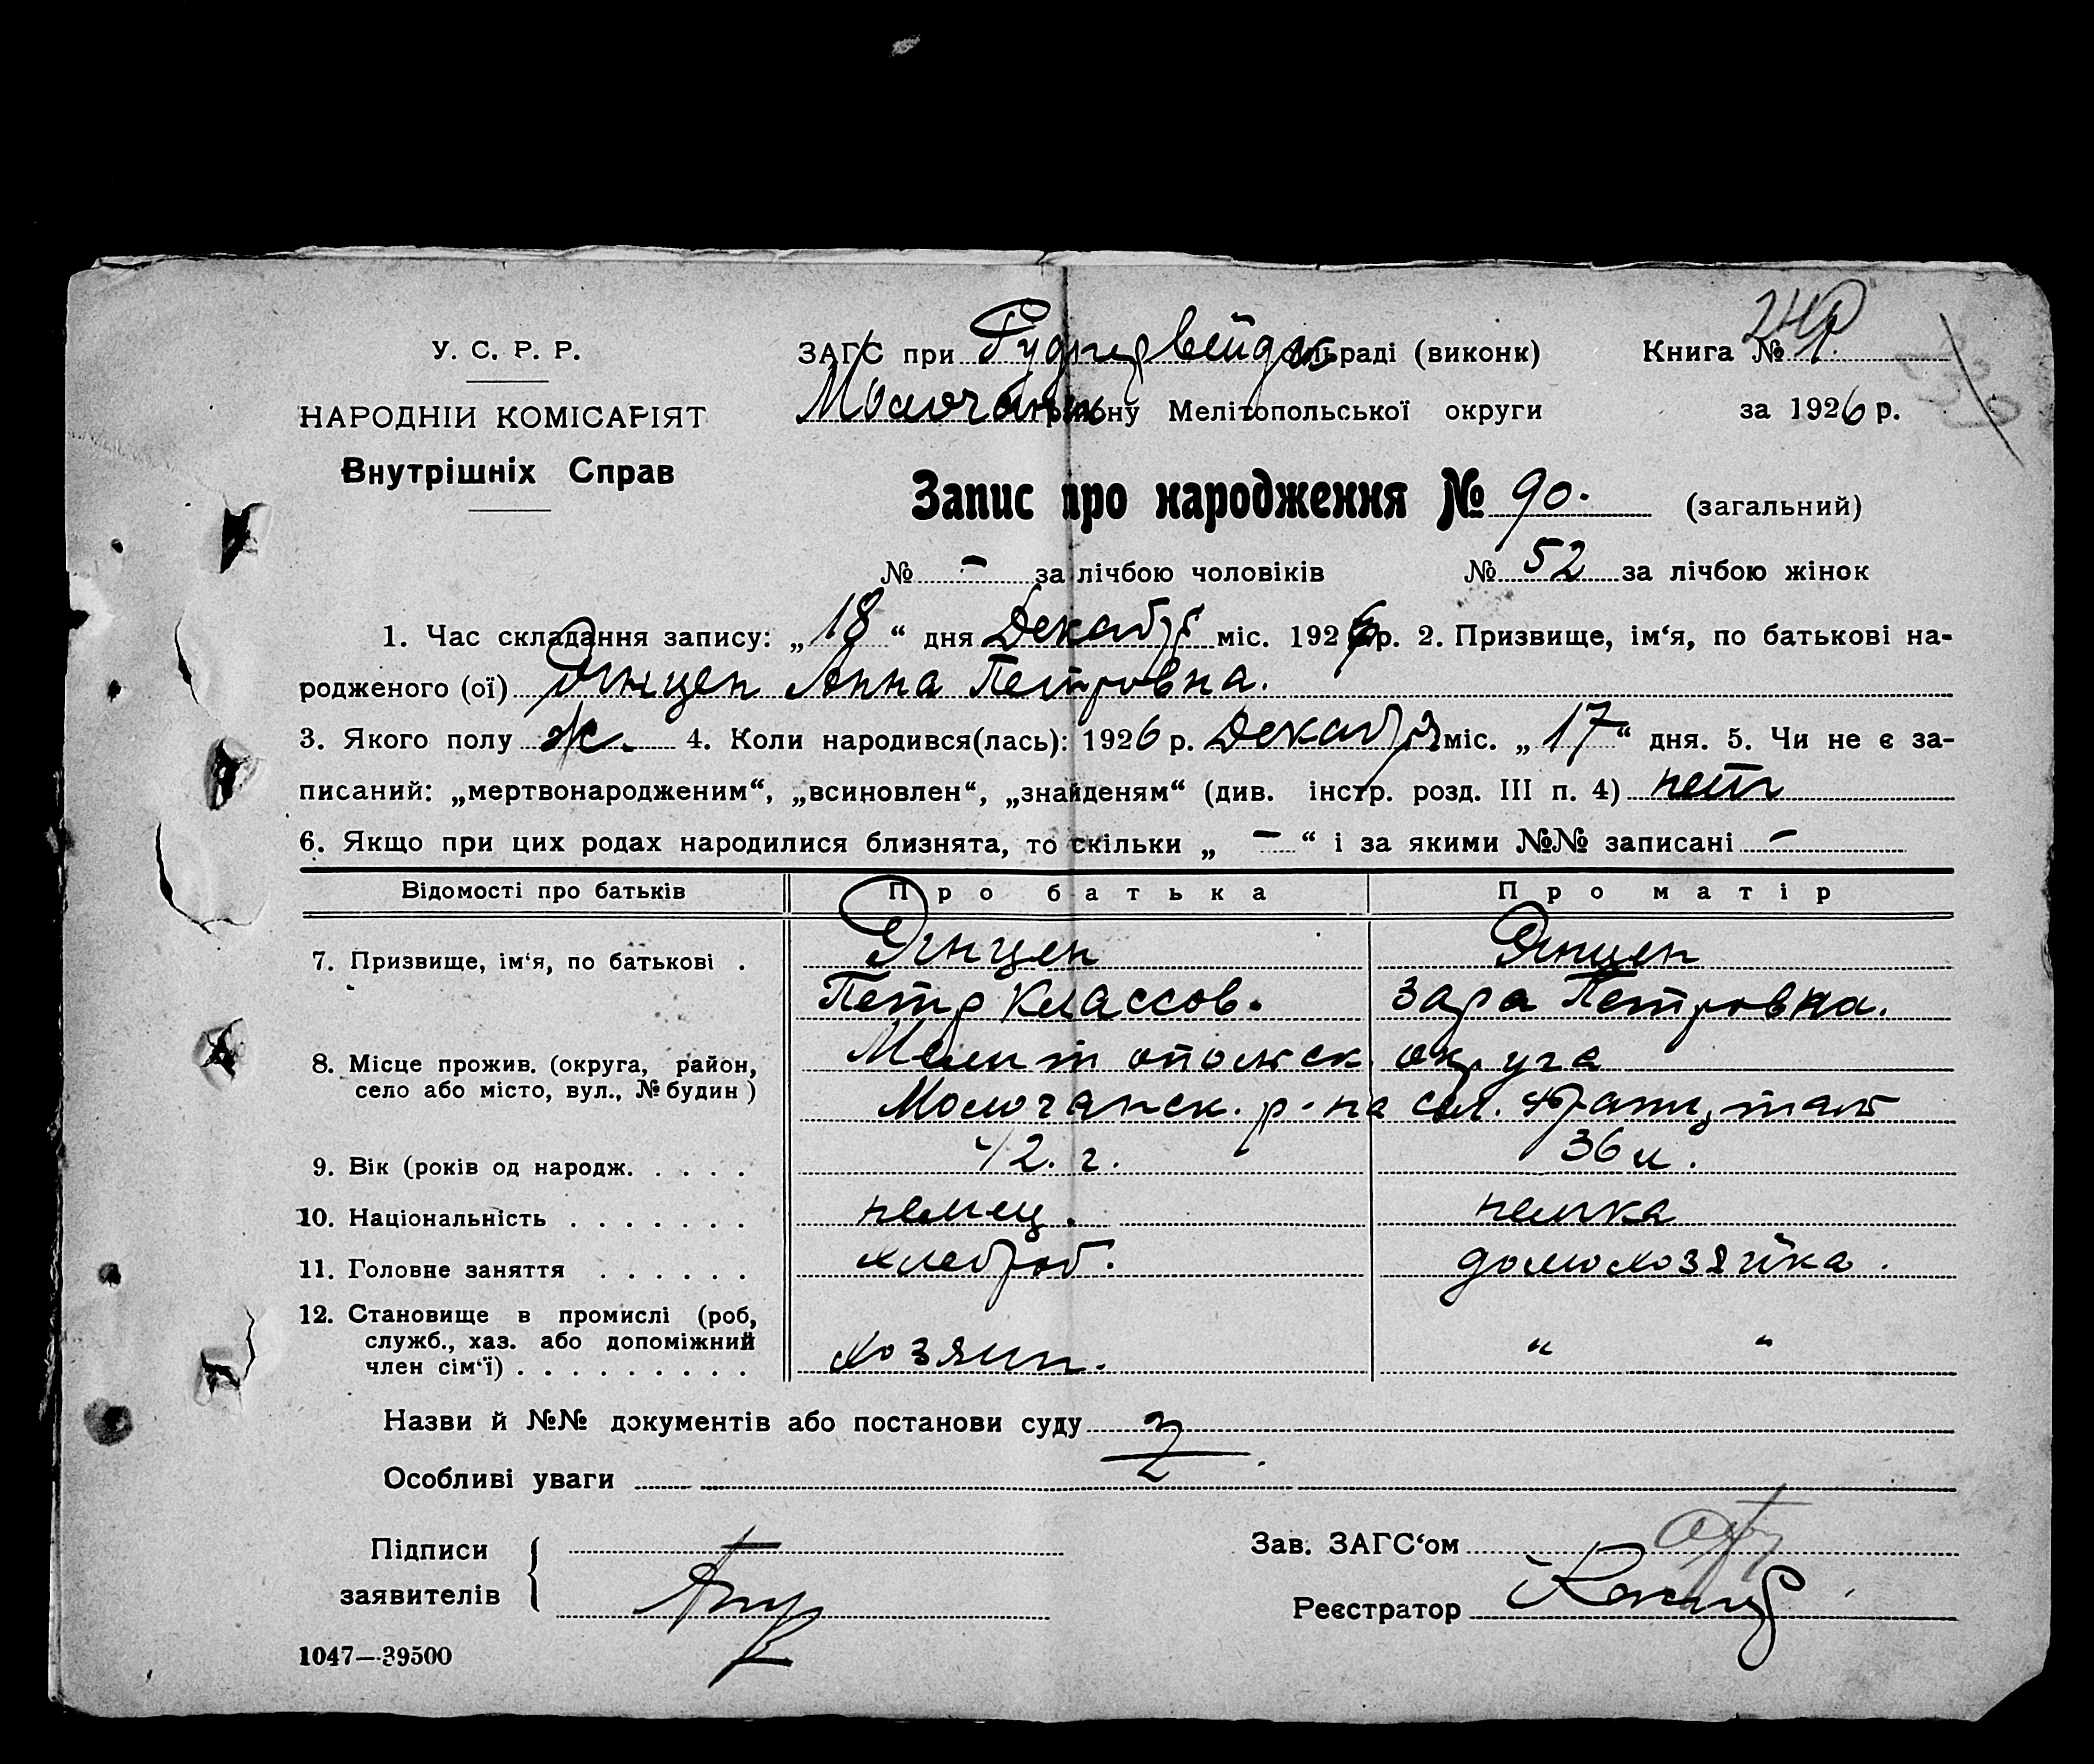 У. С. Р. Р.
НАРОДНІЙ КОМІСАРІЯТ
Внутрішніх Справ
ЗАГС при Руднервейдск сільраді (виконк)
Молочанск району Мелітопольської округи
Книга №
за 1926 р.
Запис про народження № 90. (загальний)
№ - за лічбою чоловіків № 52 за лічбою жінок
1. Час складання запису: „18“ дня Декабря міс. 1926 р. 2. Призвище, ім‘я, по батькові на-
родженого (ої) Янцен Анна Петровна.
3. Якого полу ж. 4. Коли народився(лась): 1926 р. Декабря міс. „17“ дня. 5. Чи не є за-
писаний: „мертвонародженим“, „всиновлен“, „знайденям“ (див. інстр. розд. III п. 4) нет
6. Якщо при цих родах народилися близнята, то скільки „ - “ і за якими №№ записані -
Відомості про батьків Про батька Про матір
7. Призвище, ім‘я, по батькові . Янцен Янцен
Петр Классов. Зара Петровна.
8. Місце прожив. (округа, район, Мелитопольск округа
село або місто, вул., № будин) Молочанск. р-на сел.
9. Вік (років од народж. . . . . 42. г. 36 л.
10. Національність . . . . . . . немец. немка
11. Головне заняття . . . . . . хлебороб. домохозяйка.
12. Становище в промислі (роб,
служб., хаз. або допоміжний
член сім‘ї) . . . . . . . . . хозяин. “ “
Назви й №№ документів або постанови суду
Особливі уваги
Підписи
заявителів
Зав. ЗАГС‘ом
Реєстратор
1047—39500